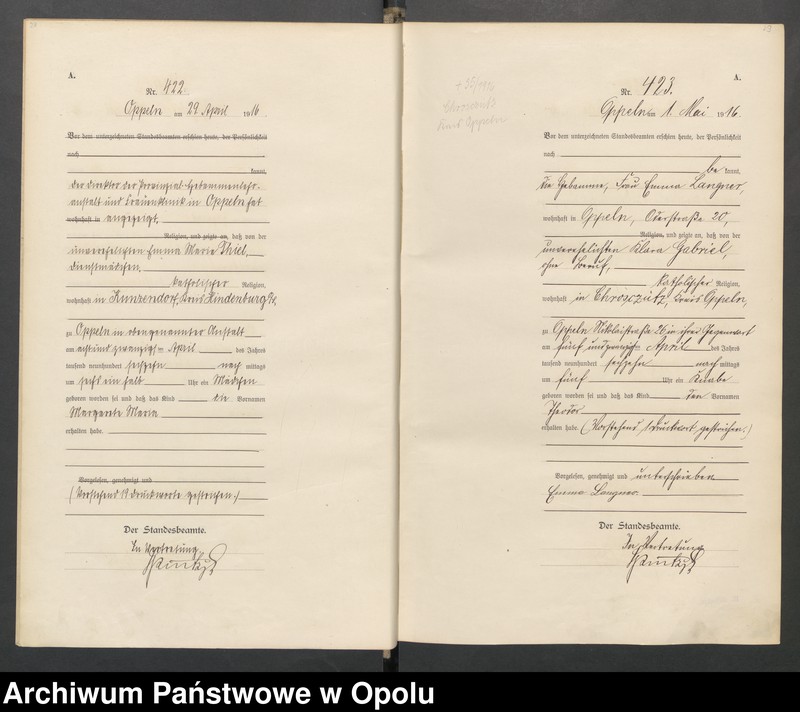 A.
Nr. 422.
Oppeln am 29. April 1916
Vor dem unterzeichneten Standesbeamten erschien heute, der Persönlichkeit
nach
kannt,
Der Direktor der Provinzial-Hebammenlehr-
anstalt und Frauenklinik in Oppeln hat
wohnhaft in angezeigt,
Religion, und zeigte an, daß von der
unverehelichten Emma Maria Thiel,
Dienstmädchen,
katholischer Religion,
wohnhaft in Kunzendorf, Kreis Hindenburg O/S.
zu Oppeln in obengenannter Anstalt
am achtundzwanzigsten April des Jahres
tausend neunhundert sechzehn nach mittags
um sechs ein halb Uhr ein Mädchen
geboren worden sei und daß das Kind die Vornamen
Margarete Maria
erhalten habe.
Vorgelesen, genehmigt und
(Vorstehend 19 Druckworte gestrichen.)
Der Standesbeamte.
In Vertretung
A.
Nr. 423.
Oppeln am 1. Mai 1916.
Vor dem unterzeichneten Standesbeamten erschien heute, der Persönlichkeit
nach
be kannt,
die Hebamme, Frau Emma Langner,
wohnhaft in Oppeln, Oderstraße 20,
Religion, und zeigte an, daß von der
unverehelichten Klara Gabriel,
ohne Beruf,
katholischer Religion,
wohnhaft in Chrosczütz, Kreis Oppeln,
zu Oppeln Nikolaistraße 26 in ihrer Gegenwart
am fünfundzwanzigsten April des Jahres
tausend neunhundert sechzehn nach mittags
um fünf Uhr ein Knabe
geboren worden sei und daß das Kind den Vornamen
Theodor
erhalten habe. (Vorstehend 1 Druckwort gestrichen.)
Vorgelesen, genehmigt und unterschrieben
Emma Langner.
Der Standesbeamte.
In Vertretung
Archiwum Państwowe w Opolu